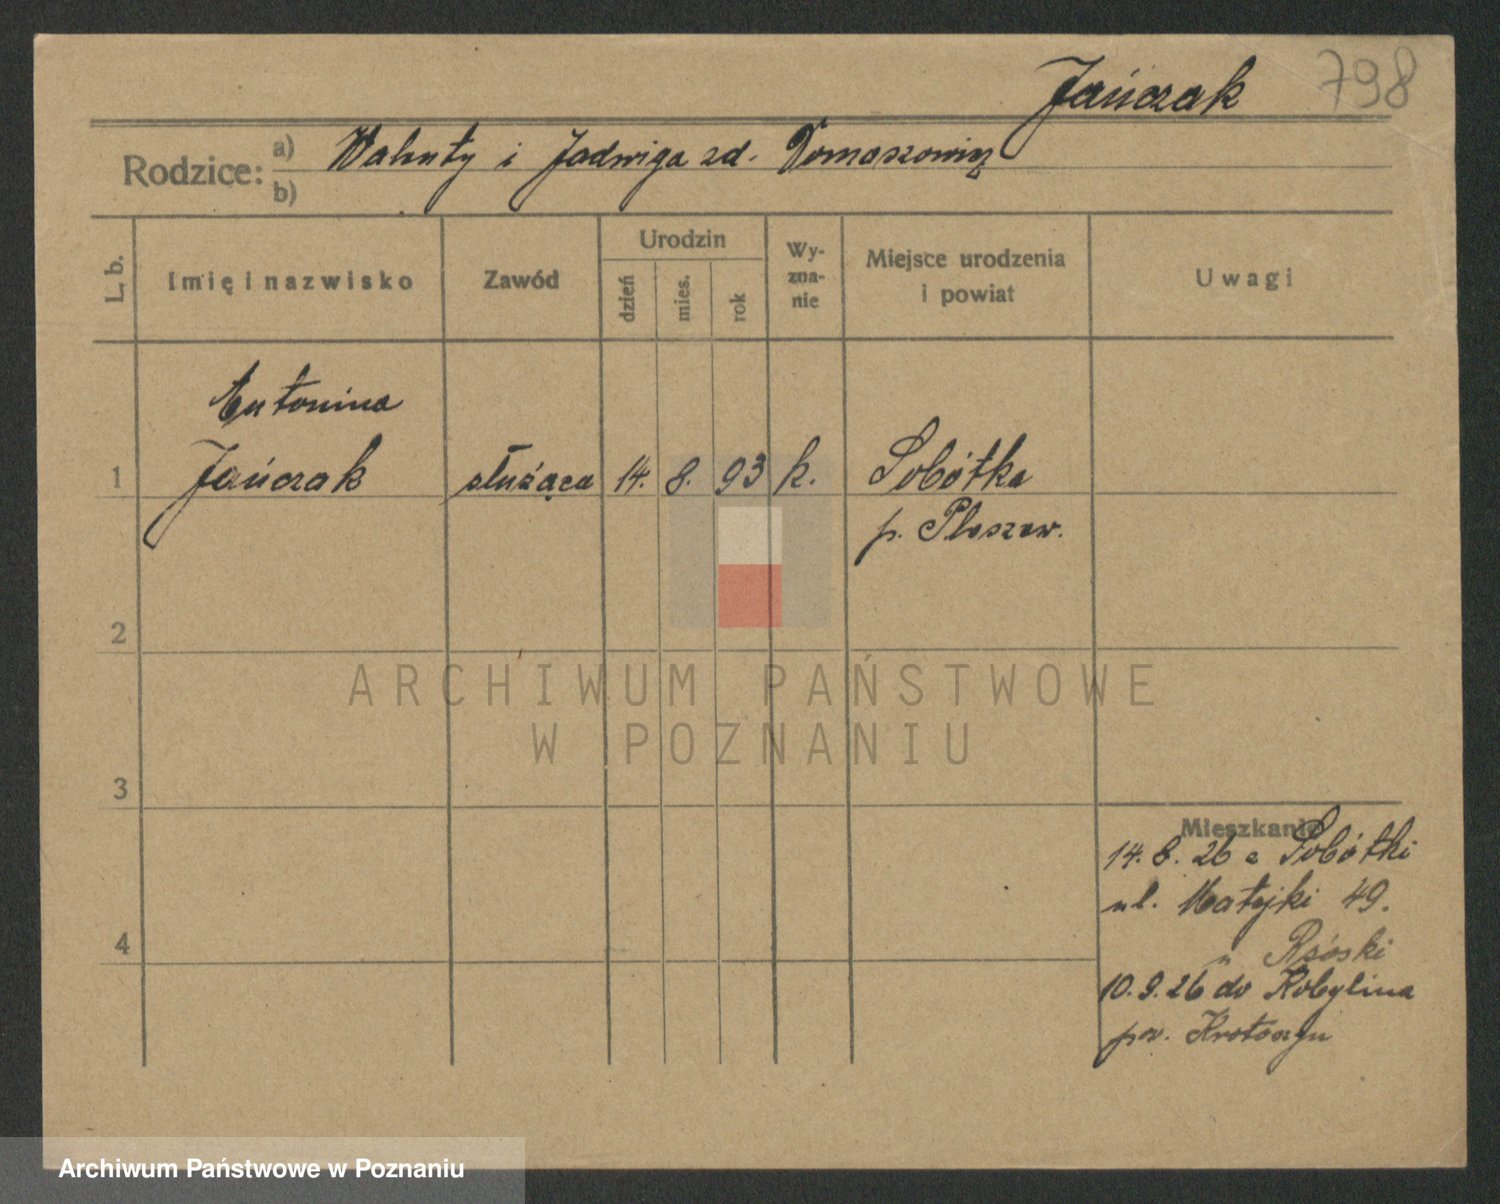 Jańczak 798
Rodzice: a) Walenty i Jadwiga zd. Tomaszewicz
b)
L. b. Imię i nazwisko Zawód Urodzin dzień mies. rok Wy-zna-nie Miejsce urodzenia i powiat Uwagi
Antonina
1 Jańczak służąca 14. 8. 93 k. Sobótka
p. Pleszew.
2
ARCHIWUM PAŃSTWOWE
W POZNANIU
3
Mieszkanie
14. 8. 26 z Sobótki
ul. Matejki 49.
4
10. 9. 26 do Kobylina
pow. Krotoszyn
Archiwum Państwowe w Poznaniu